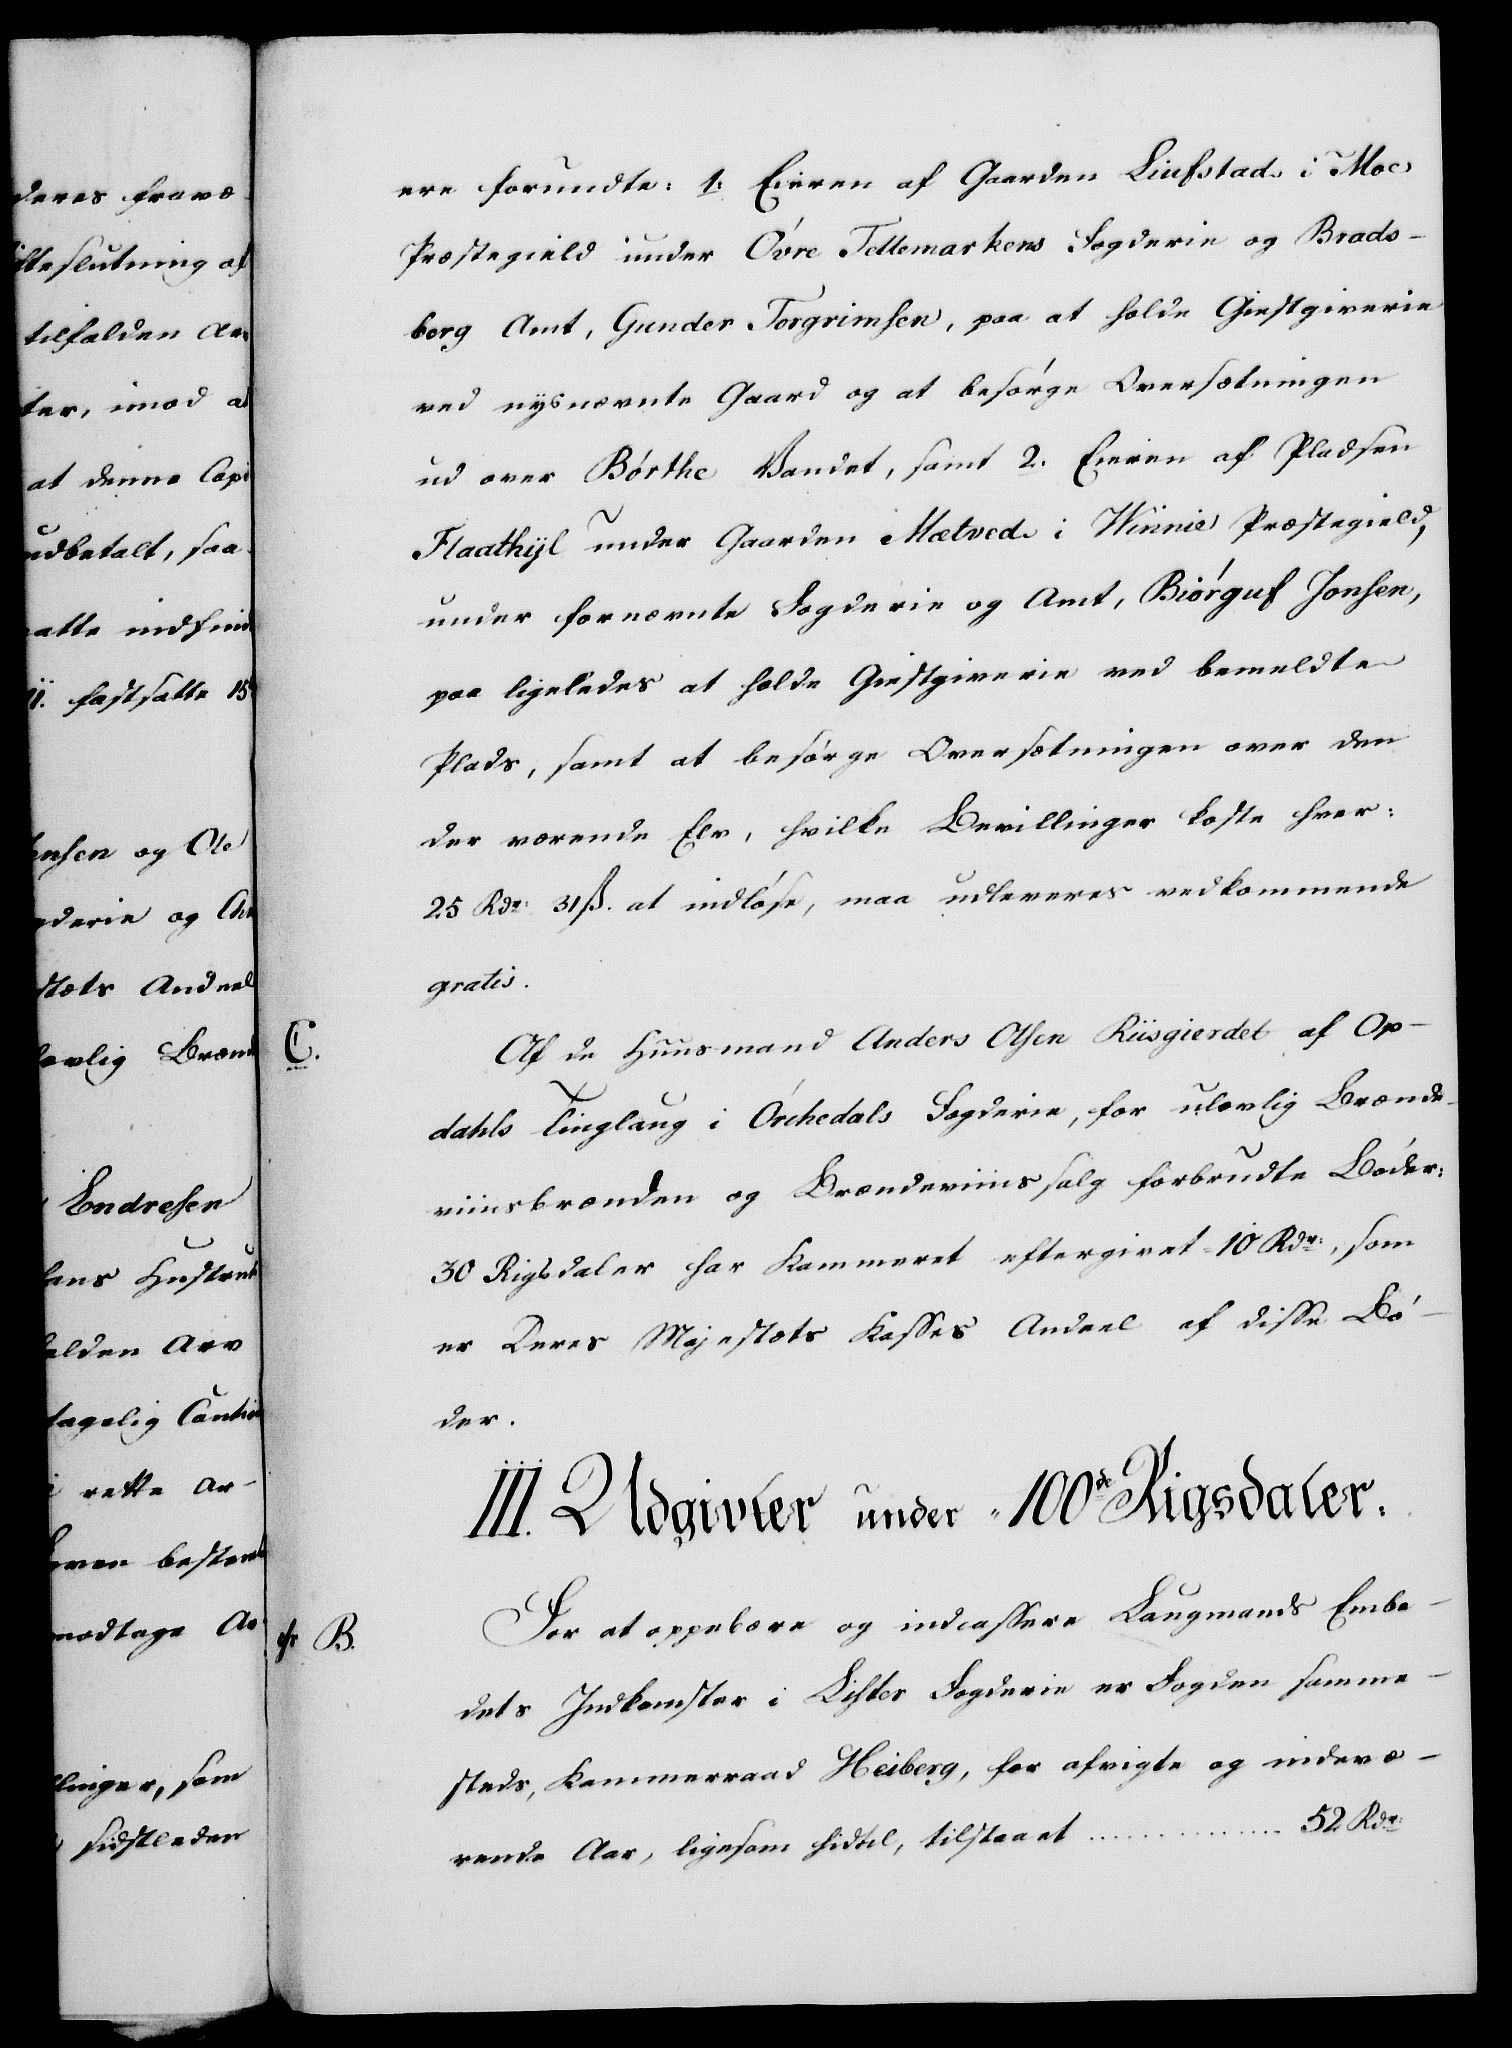 deres fravæ-
slutning af
tilfalden Arv
ter, imod at
at denne Capi
udbetalt, saa
atte indfind
fastsatte 15
ensen og Ole
gderie og Am
stæts Andeel
lovlig Brænd
Endresen
hans Hustrue
falden Arv
tagelig Caution
i rette Ar-
bestemt
modtage Ar
llinger, som
sidstleden
ere forundte: 1: Eieren af Gaarden Liufstad i Moe
Præstegield under Övre Tellemarkens Fogderie og Brads-
berg Amt, Gunder Torgrimsen, paa at holde Giestgiverie
ved nysnævnte Gaard og at besörge Oversætningen
ud over Börthe Vandet, samt 2. Eieren af Pladsen
Flaathyl under Gaarden Mætved i Winnie Præstegield,
under fornævnte Fogderie og Amt, Biörguf Jonsen,
paa ligeledes at holde Giestgiverie ved bemeldte
Plads, samt at besörge Oversætningen over den
der værende Elv, hvilke Bevillinger koste hver:
25 Rdr: 31 ß. at indlöse, maa udleveres vedkommende
gratis.
C. Af de Huusmand Anders Olsen Riisgierdet af Op-
dahls Tinglaug i Örchedals Fogderie, for ulovlig Brænde-
viinsbrænden og Brændeviinssalg forbrudte Böder:
30 Rigsdaler har Kammeret eftergivet 10 Rdr:, som
er Deres Majestæts Kasses Andeel af disse Bö-
der.
III. Udgivter under 100de Rigsdaler.
B. For at oppebære og indcassere Laugmands Embe-
dets Indkomster i Lister Fogderie er Fogden samme-
steds, Kammerraad Heiberg, for afvigte og indevæ-
rende Aar, ligesom hidtil, tilstaaet .............. 52 Rdr: